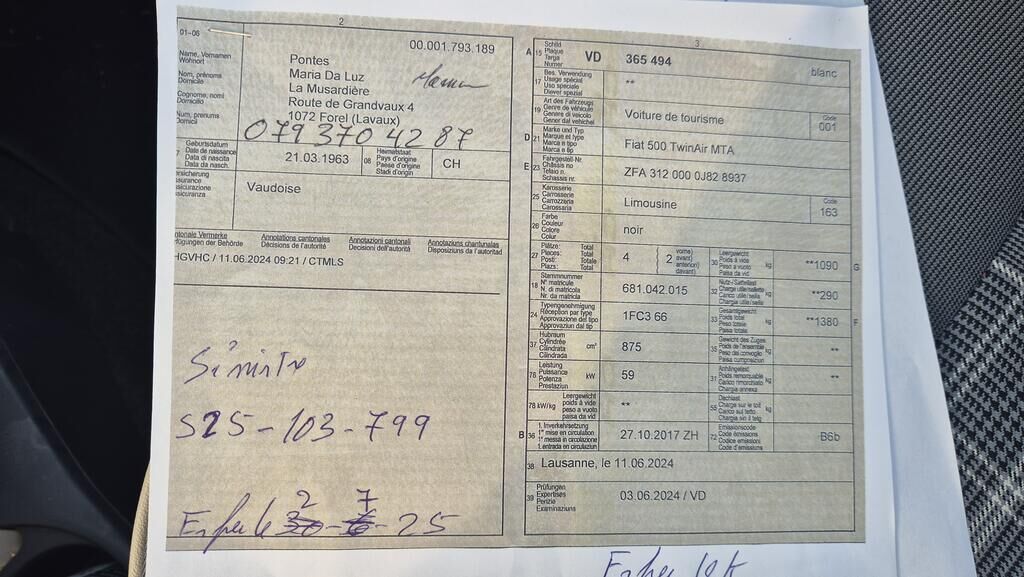 2
01-06
00.001.793.189
Name, Vornamen
Wohnort
Nom, prénoms
Domicile
Cognome, nomi
Domicilio
Num, prenums
Domicil
Pontes
Maria Da Luz
La Musardière
Route de Grandvaux 4
1072 Forel (Lavaux)
079 370 42 87
Geburtsdatum
Date de naissance
Data di nascita
Data da nasch.
21.03.1963
08
Heimatstaat
Pays d'origine
Paese d'origine
Stadi d'origin
CH
Vaudoise
Annotations cantonales
Décisions de l'autorité
Annotazioni cantonali
Decisioni dell'autorità
Annotaziuns chantunalas
Disposiziuns da l'autoritad
HGVHC / 11.06.2024 09:21 / CTMLS
Sinistre
S25-103-799
2 7
25
3
A 15
Schild
Plaque
Targa
Numer
VD 365 494 blanc
17
Bes. Verwendung
Usage spécial
Uso speciale
Diever spezial
**
19
Art des Fahrzeugs
Genre de véhicule
Genere di veicolo
Gener dal vehichel
Voiture de tourisme
Code
001
D 21
Marke und Typ
Marque et type
Marca e tipo
Marca e tip
Fiat 500 TwinAir MTA
E 23
Fahrgestell-Nr.
Châssis no
Telaio n.
Schassis nr.
ZFA 312 000 0J82 8937
25
Karosserie
Carrosserie
Carrozzeria
Carossaria
Limousine
Code
163
26
Farbe
Couleur
Colore
Colur
noir
27
Plätze: Total
Places: Total
Posti: Totale
Plazs: Total
4
2
vorne
avant
anteriori
davant
30
Leergewicht
Poids à vide
Peso a vuoto
Paisa da vid
kg
**1090
G
18
Stammnummer
N° matricule
N. di matricola
Nr. da matricla
681.042.015
32
Nutz-/Sattellast
Charge utile/sellette
Carico utile/sella
Chargia utila/sella
kg
**290
24
Typengenehmigung
Réception par type
Approvazione del tipo
Approvaziun dal tip
1FC3 66
33
Gesamtgewicht
Poids total
Peso totale
Paisa totala
kg
**1380
F
37
Hubraum
Cylindrée
Cilindrata
Cilindrada
cm³
875
35
Gewicht des Zuges
Poids de l'ensemble
Peso del convoglio
Paisa cumposiziun
kg
**
76
Leistung
Puissance
Potenza
Prestaziun
kW
59
31
Anhängelast
Poids remorquable
Carico rimorchiato
Chargia annexa
kg
**
78 kW/kg
Leergewicht
poids à vide
peso a vuoto
paisa da vid
**
55
Dachlast
Charge sur le toit
Carico sul tetto
Chargia sin il tetg
kg
B 36
1. Inverkehrsetzung
1re mise en circulation
1a messa in circolazione
1. entrada en circulaziun
27.10.2017 ZH
72
Emissionscode
Code émissions
Codice emissioni
Code d'emissiuns
B6b
38
Lausanne, le 11.06.2024
39
Prüfungen
Expertises
Perizie
Examinaziuns
03.06.2024 / VD